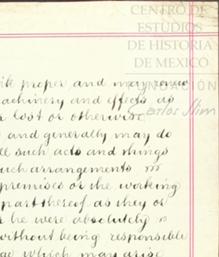 CENTRO DE
ESTUDIOS
DE HISTORIA
DE MEXICO
FUNDACIÓN
Carlos Slim
proper and may renew
machinery and effects as
lost or otherwise
and generally may do
all such acts and things
such arrangements
premises or the working
part thereof as they or
he were absolutely
without being responsible
which may arise